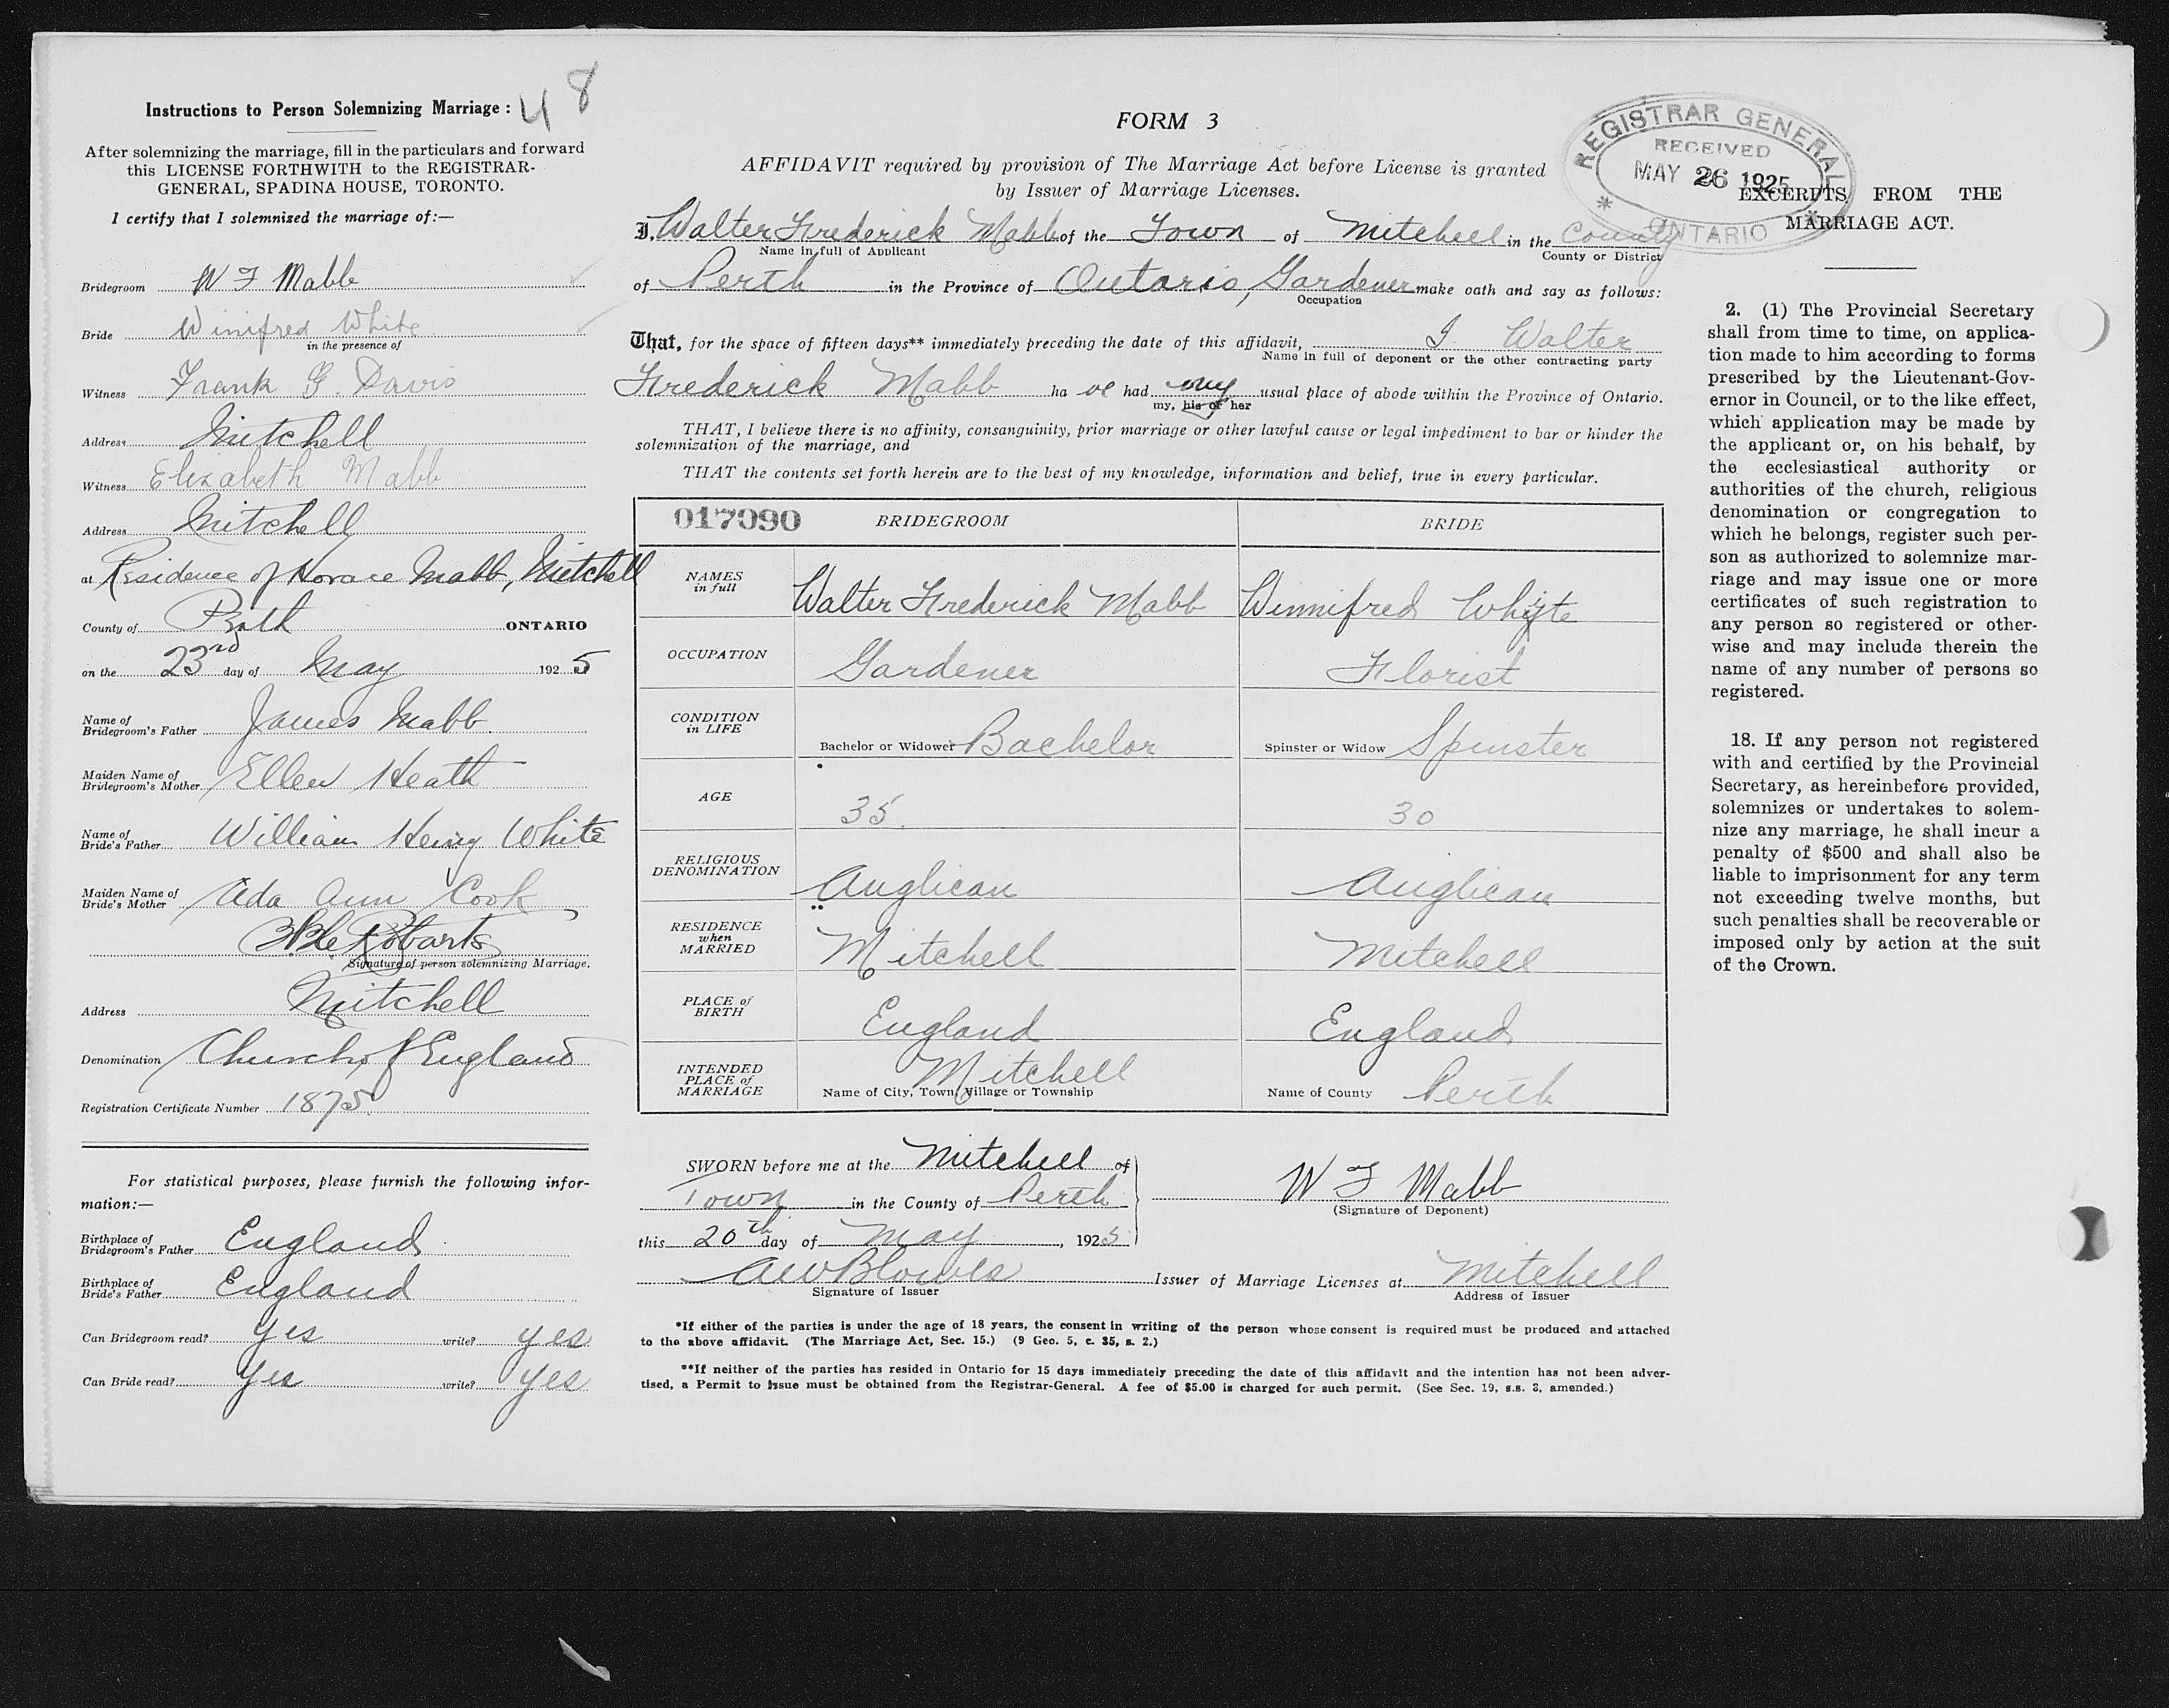 Instructions to Person Solemnizing Marriage :
48
After solemnizing the marriage, fill in the particulars and forward
this LICENSE FORTHWITH to the REGISTRAR-
GENERAL, SPADINA HOUSE, TORONTO.
I certify that I solemnized the marriage of:—
Bridegroom W F Mabb
Bride Winifred White
in the presence of
Witness Frank G. Davis
Address Mitchell
Witness Elizabeth Mabb
Address Mitchell
at Residence of Horace Mabb, Mitchell
County of Perth ONTARIO
on the 23rd day of May 1925
Name of
Bridegroom's Father James Mabb.
Maiden Name of
Bridegroom's Mother Ellen Heath
Name of
Bride's Father William Henry White
Maiden Name of
Bride's Mother Ada Ann Cook
Robarts
Signature of person solemnizing Marriage.
Address Mitchell
Denomination Church of England
Registration Certificate Number 1875
For statistical purposes, please furnish the following infor-
mation:—
Birthplace of
Bridegroom's Father England
Birthplace of
Bride's Father England
Can Bridegroom read? yes write? yes
Can Bride read? yes write? yes
FORM 3
AFFIDAVIT required by provision of The Marriage Act before License is granted
by Issuer of Marriage Licenses.
I, Walter Frederick Mabb of the Town of Mitchell in the County
Name in full of Applicant County or District
of Perth in the Province of Ontario, Gardener make oath and say as follows:
Occupation
That, for the space of fifteen days** immediately preceding the date of this affidavit, I Walter
Name in full of deponent or the other contracting party
Frederick Mabb ha ve had my usual place of abode within the Province of Ontario.
my, his or her
THAT, I believe there is no affinity, consanguinity, prior marriage or other lawful cause or legal impediment to bar or hinder the
solemnization of the marriage, and
THAT the contents set forth herein are to the best of my knowledge, information and belief, true in every particular.
017090 BRIDEGROOM BRIDE
NAMES
in full
Walter Frederick Mabb Winnifred Whyte
OCCUPATION Gardener Florist
CONDITION
in LIFE
Bachelor or Widower Bachelor Spinster or Widow Spinster
AGE 35 30
RELIGIOUS
DENOMINATION
Anglican Anglican
RESIDENCE
when
MARRIED
Mitchell Mitchell
PLACE of
BIRTH
England England
INTENDED
PLACE of
MARRIAGE
Mitchell Perth
Name of City, Town, Village or Township Name of County
SWORN before me at the Mitchell of
Town in the County of Perth
this 20th day of May, 1925
W F Mabb
(Signature of Deponent)
AW Blowes Issuer of Marriage Licenses at Mitchell
Signature of Issuer Address of Issuer
*If either of the parties is under the age of 18 years, the consent in writing of the person whose consent is required must be produced and attached
to the above affidavit. (The Marriage Act, Sec. 15.) (9 Geo. 5, c. 35, s. 2.)
**If neither of the parties has resided in Ontario for 15 days immediately preceding the date of this affidavit and the intention has not been adver-
tised, a Permit to Issue must be obtained from the Registrar-General. A fee of $5.00 is charged for such permit. (See Sec. 19, s.s. 3, amended.)
REGISTRAR GENERAL
RECEIVED
MAY 26 1925
* ONTARIO *
EXCERPTS FROM THE
MARRIAGE ACT.
2. (1) The Provincial Secretary
shall from time to time, on applica-
tion made to him according to forms
prescribed by the Lieutenant-Gov-
ernor in Council, or to the like effect,
which application may be made by
the applicant or, on his behalf, by
the ecclesiastical authority or
authorities of the church, religious
denomination or congregation to
which he belongs, register such per-
son as authorized to solemnize mar-
riage and may issue one or more
certificates of such registration to
any person so registered or other-
wise and may include therein the
name of any number of persons so
registered.
18. If any person not registered
with and certified by the Provincial
Secretary, as hereinbefore provided,
solemnizes or undertakes to solem-
nize any marriage, he shall incur a
penalty of $500 and shall also be
liable to imprisonment for any term
not exceeding twelve months, but
such penalties shall be recoverable or
imposed only by action at the suit
of the Crown.